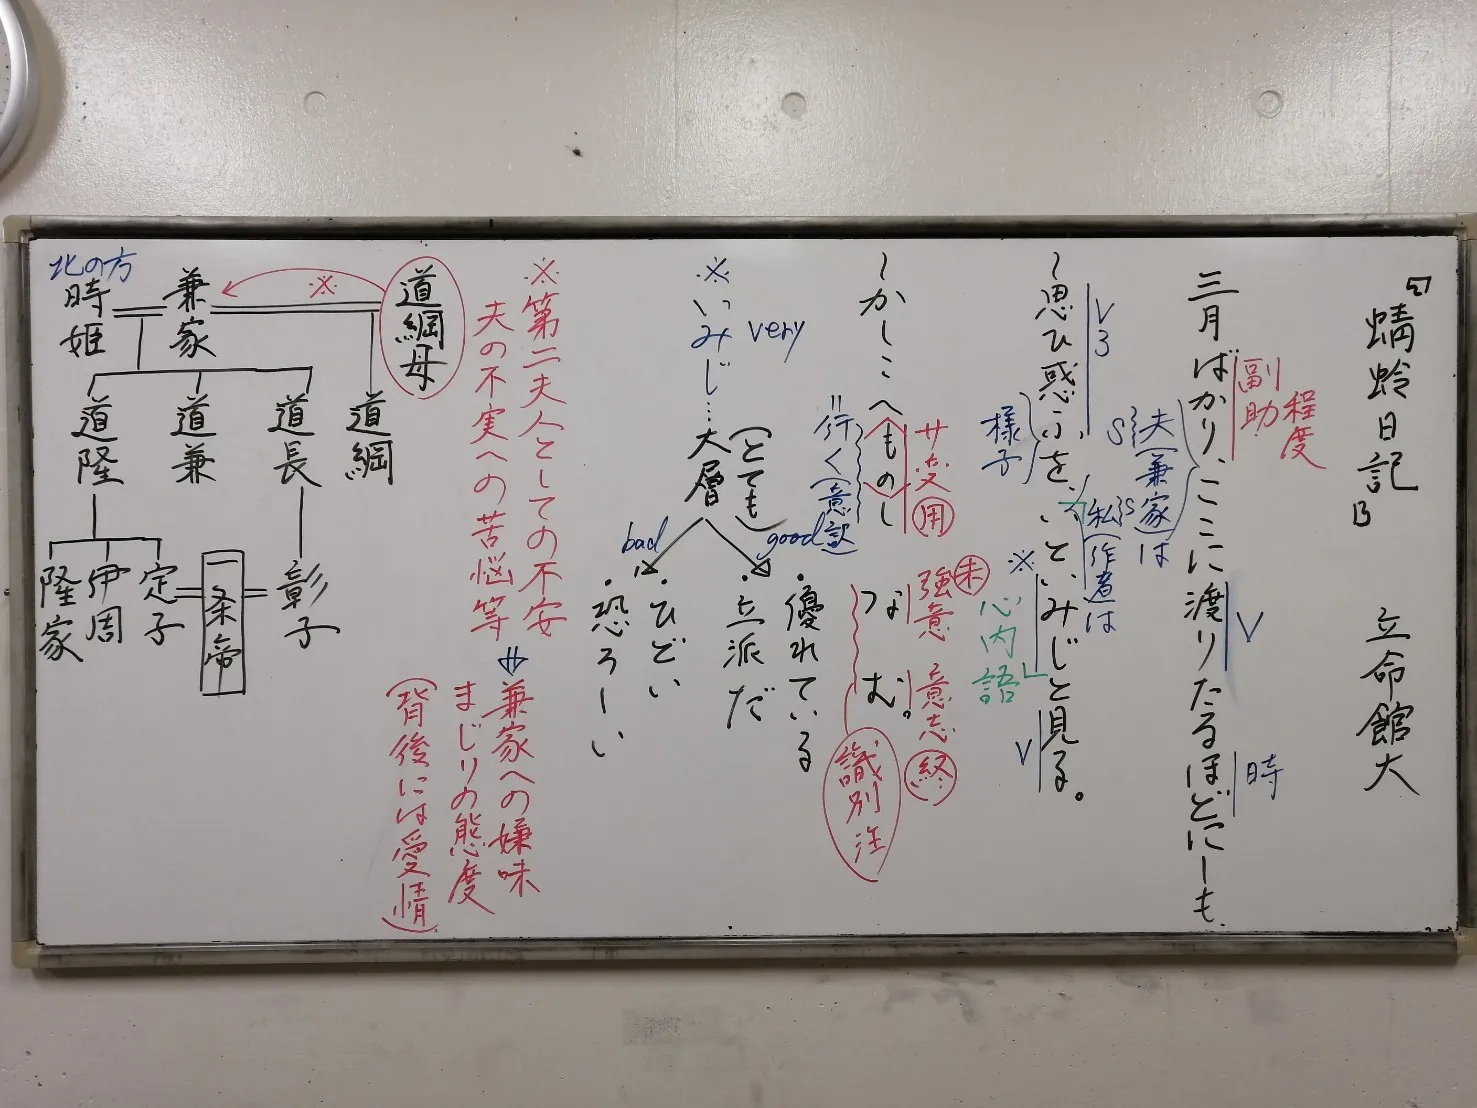 蜻蛉日記 B 立命館大
三月ばかり、ここに渡りたるほどにしも、
副助
程度
V
時
夫(兼家)は
S
私(作者)は
S
〜思ひ惑ふを、いといみじと見る。
V3
様子
カ
※
心内語
V
〜かしこへものしなむ。
サ変用
=行く(意訳)
強意未
意志終
識別注
※いみじ…大層(とても)
very
good
・優れている
・立派だ
bad
・ひどい
・恐ろしい
※第二夫人としての不安
夫の不実への苦悩等
⇓
兼家への嫌味
まじりの態度
(背後には愛情)
道綱母
※
兼家
北の方
時姫
道綱
道長
道兼
道隆
彰子
一条帝
定子
伊周
隆家